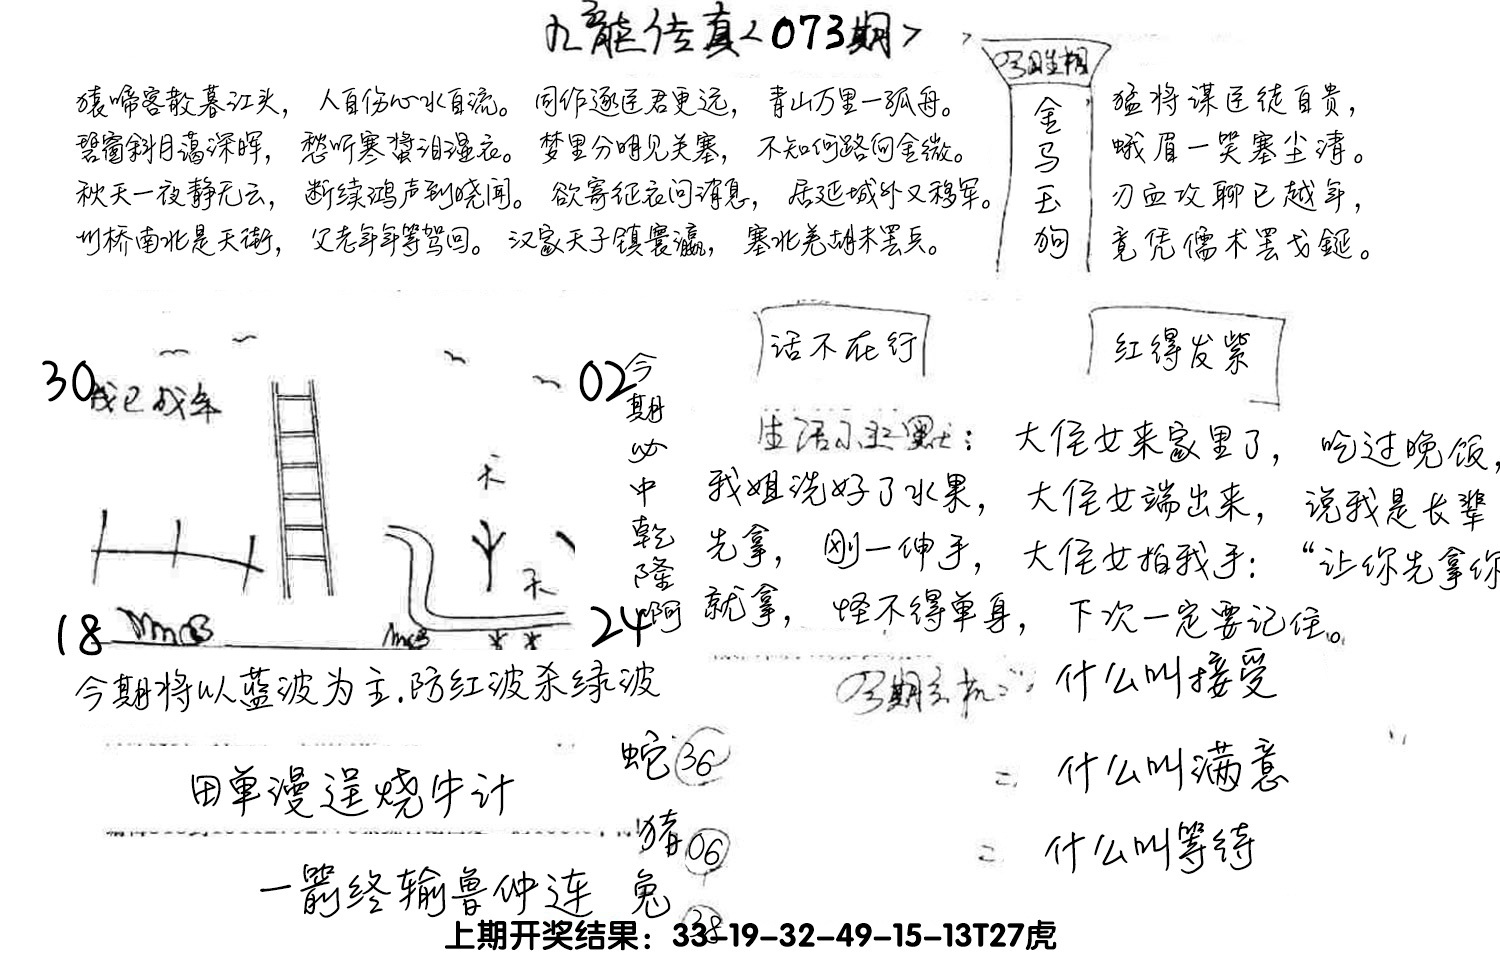 九龙传真<073期>
猿啼客散暮江头，人自伤心水自流。同作逐臣君更远，青山万里一孤舟。
碧窗斜月蔼深晖，愁听寒螀泪湿衣。梦里分明见关塞，不知何路向金微。
秋天一夜静无云，断续鸿声到晓闻。欲寄征衣问消息，居延城外又移军。
州桥南北是天街，父老年年等驾回。汉家天子镇寰瀛，塞北羌胡未罢兵。
金
马
玉
狗
猛将谋臣徒自贵，
蛾眉一笑塞尘清。
刃血攻聊已越年，
竟凭儒术罢戈鋋。
30
02
18
24
今期必中乾隆啊
话不在行
红得发紫
大侄女来家里了，吃过晚饭，
我姐洗好了水果，大侄女端出来，说我是长辈
先拿，刚一伸手，大侄女拍我手：“让你先拿你
就拿，怪不得单身，下次一定要记住。
今期将以蓝波为主.防红波杀绿波
什么叫接受
二 什么叫满意
二 什么叫等待
田单漫逞烧牛计
一箭终输鲁仲连
蛇 36
猪 06
兔 38
上期开奖结果：33-19-32-49-15-13T27虎